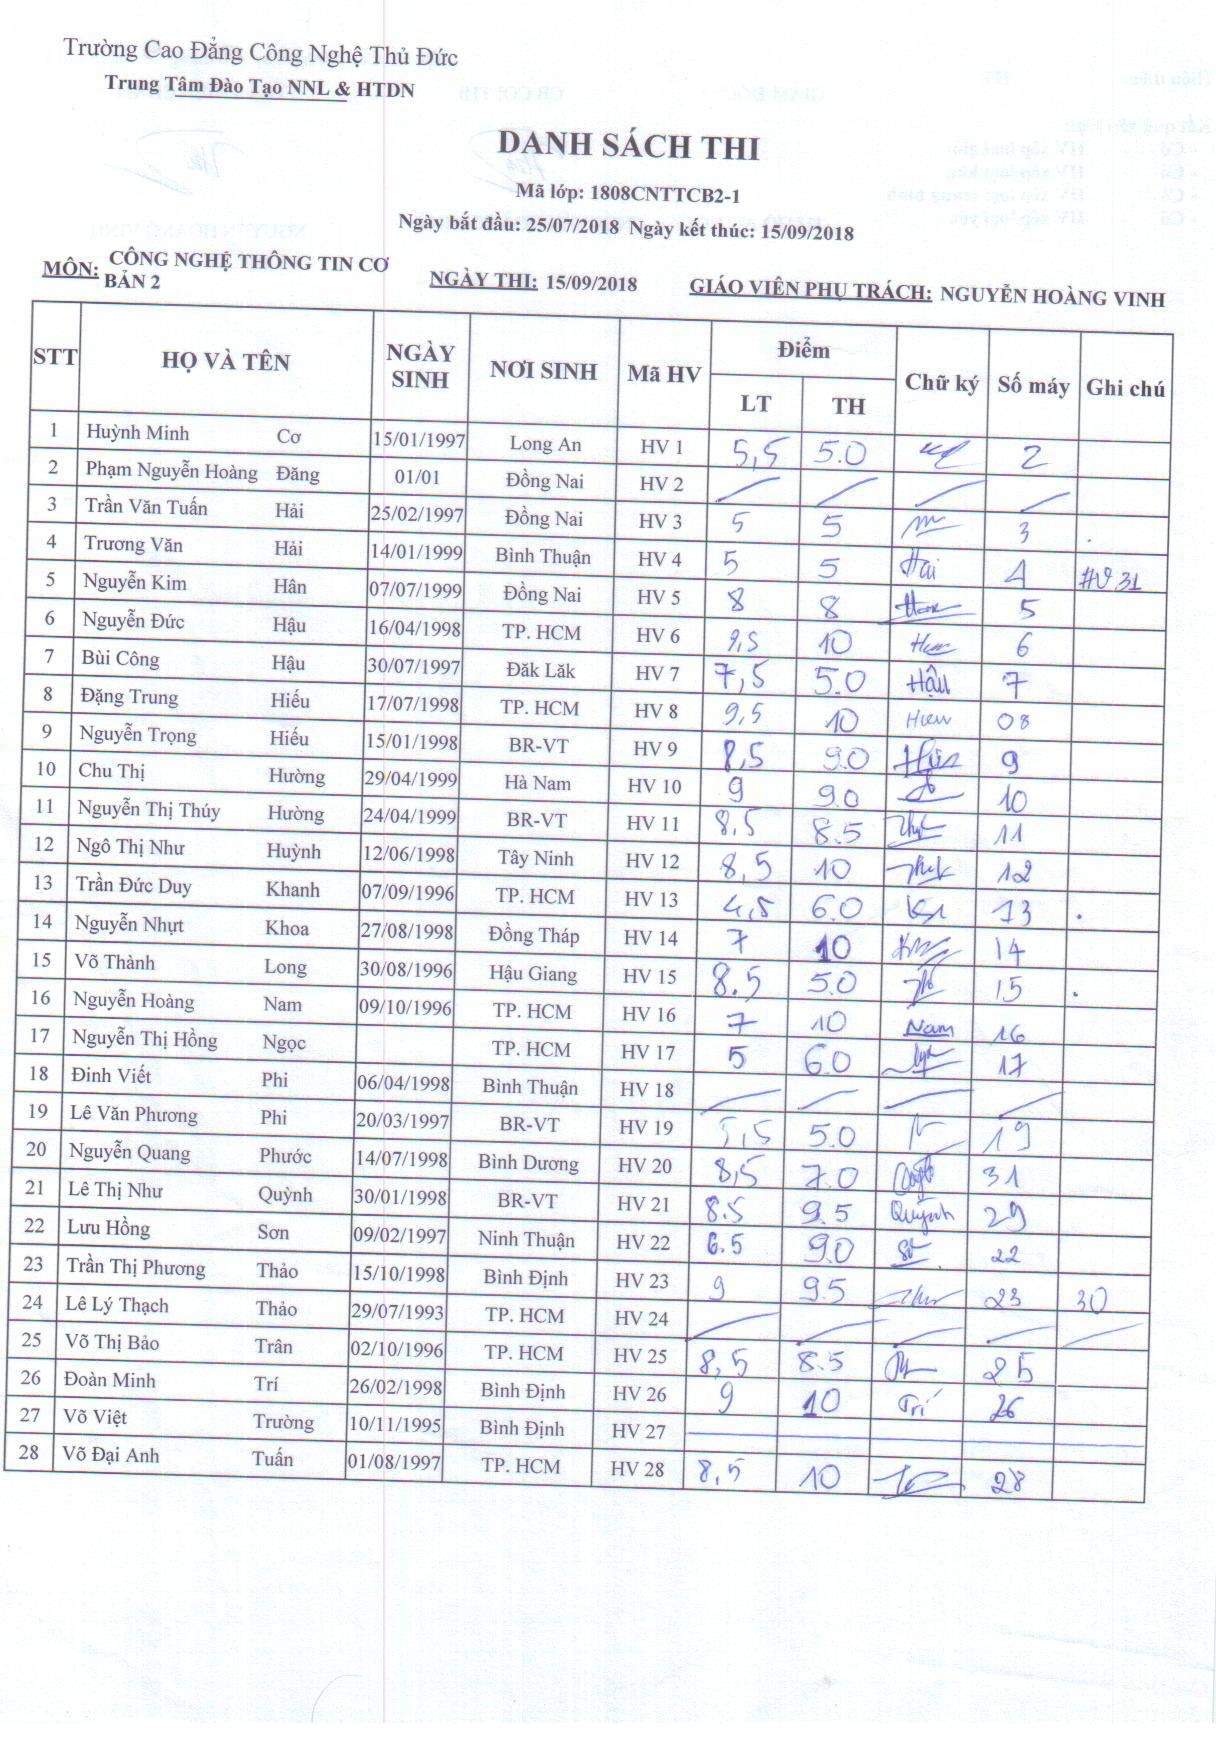 Trường Cao Đẳng Công Nghệ Thủ Đức
Trung Tâm Đào Tạo NNL & HTDN
DANH SÁCH THI
Mã lớp: 1808CNTTCB2-1
Ngày bắt đầu: 25/07/2018 Ngày kết thúc: 15/09/2018
MÔN: CÔNG NGHỆ THÔNG TIN CƠ BẢN 2 NGÀY THI: 15/09/2018 GIÁO VIÊN PHỤ TRÁCH: NGUYỄN HOÀNG VINH
STT HỌ VÀ TÊN NGÀY SINH NƠI SINH Mã HV Điểm Chữ ký Số máy Ghi chú
LT TH
1 Huỳnh Minh Cơ 15/01/1997 Long An HV 1 5,5 5.0 2
2 Phạm Nguyễn Hoàng Đăng 01/01 Đồng Nai HV 2
3 Trần Văn Tuấn Hải 25/02/1997 Đồng Nai HV 3 5 5 3
4 Trương Văn Hải 14/01/1999 Bình Thuận HV 4 5 5 Hai 4 HV 31
5 Nguyễn Kim Hân 07/07/1999 Đồng Nai HV 5 8 8 5
6 Nguyễn Đức Hậu 16/04/1998 TP. HCM HV 6 9,5 10 6
7 Bùi Công Hậu 30/07/1997 Đăk Lăk HV 7 7,5 5.0 Hậu 7
8 Đặng Trung Hiếu 17/07/1998 TP. HCM HV 8 9,5 10 Hieu 08
9 Nguyễn Trọng Hiếu 15/01/1998 BR-VT HV 9 8,5 9.0 9
10 Chu Thị Hường 29/04/1999 Hà Nam HV 10 9 9.0 10
11 Nguyễn Thị Thúy Hường 24/04/1999 BR-VT HV 11 8,5 8.5 11
12 Ngô Thị Như Huỳnh 12/06/1998 Tây Ninh HV 12 8,5 10 12
13 Trần Đức Duy Khanh 07/09/1996 TP. HCM HV 13 4,5 6.0 13
14 Nguyễn Nhựt Khoa 27/08/1998 Đồng Tháp HV 14 7 10 14
15 Võ Thành Long 30/08/1996 Hậu Giang HV 15 8.5 5.0 15
16 Nguyễn Hoàng Nam 09/10/1996 TP. HCM HV 16 7 10 Nam 16
17 Nguyễn Thị Hồng Ngọc TP. HCM HV 17 5 6.0 17
18 Đinh Viết Phi 06/04/1998 Bình Thuận HV 18
19 Lê Văn Phương Phi 20/03/1997 BR-VT HV 19 5,5 5.0 19
20 Nguyễn Quang Phước 14/07/1998 Bình Dương HV 20 8,5 7.0 31
21 Lê Thị Như Quỳnh 30/01/1998 BR-VT HV 21 8.5 9.5 Quỳnh 29
22 Lưu Hồng Sơn 09/02/1997 Ninh Thuận HV 22 6.5 9.0 22
23 Trần Thị Phương Thảo 15/10/1998 Bình Định HV 23 9 9.5 23 30
24 Lê Lý Thạch Thảo 29/07/1993 TP. HCM HV 24
25 Võ Thị Bảo Trân 02/10/1996 TP. HCM HV 25 8,5 8.5 25
26 Đoàn Minh Trí 26/02/1998 Bình Định HV 26 9 10 Trí 26
27 Võ Việt Trường 10/11/1995 Bình Định HV 27
28 Võ Đại Anh Tuấn 01/08/1997 TP. HCM HV 28 8,5 10 28